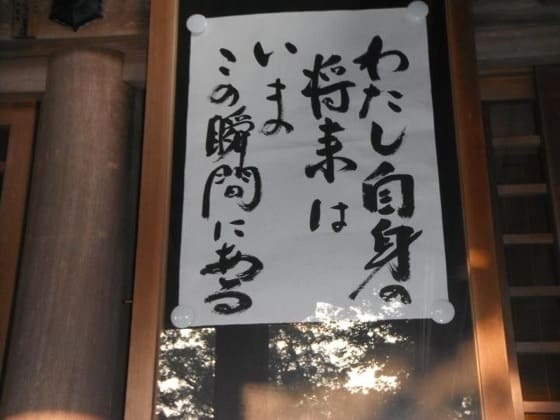 わたし自身の
将来は
いまの
この瞬間にある